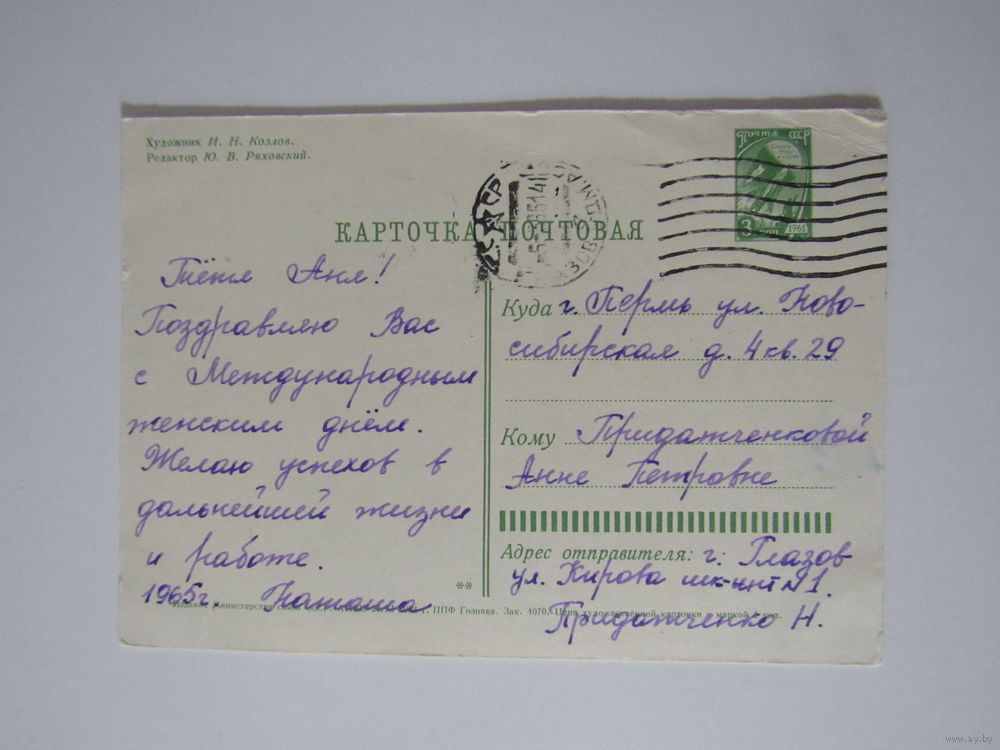 Художник И. Н. Козлов.
Редактор Ю. В. Ряховский.
Почта СССР
3 коп.
1961
КАРТОЧКА ПОЧТОВАЯ
Тётя Аня!
Поздравляю Вас
с Международным
женским днём.
Желаю успехов в
дальнейшей жизни
и работе.
1965г. Наташа
Куда г. Пермь ул. Ново-
сибирская д. 4 кв. 29
Кому Придатченковой
Анне Петровне
Адрес отправителя: г. Глазов
ул. Кирова шк-инт №1.
Придатченко Н.
**
Министерства ППФ Гознака. Зак. 4070. Цена художественной карточки с маркой коп.
www.ay.by